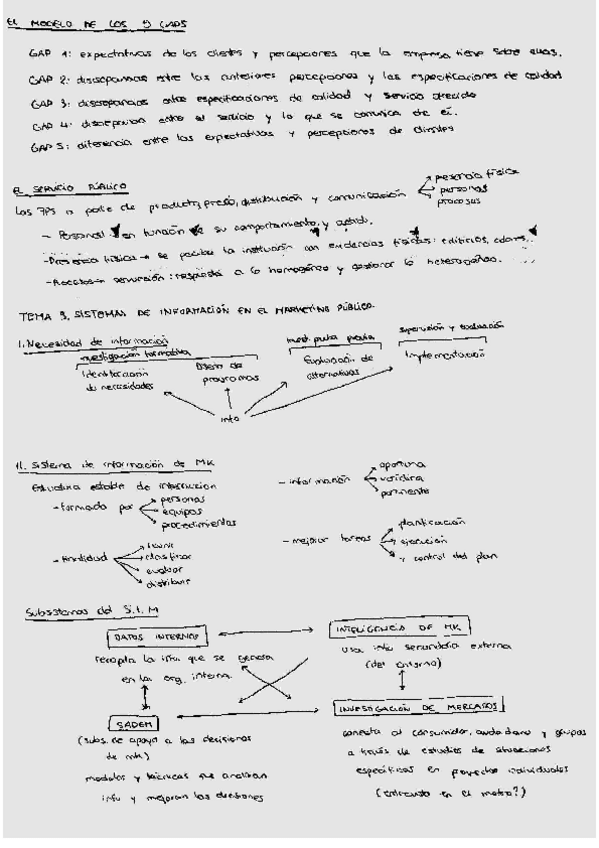 EL MODELO DE LOS 5 GAPS
GAP 1: expectativas de los clientes y percepciones que la empresa tiene sobre ellas.
GAP 2: discrepancias entre las anteriores percepciones y las especificaciones de calidad
GAP 3: discrepancias entre especificaciones de calidad y servicio ofrecido
GAP 4: discrepancia entre el servicio y lo que se comunica de él.
GAP 5: diferencia entre las expectativas y percepciones de clientes
EL SERVICIO PÚBLICO
Las 7Ps a parte de producto, precio, distribución y comunicación
presencia física
personas
procesos
- Personal en función de su comportamiento y actitud.
- Presencia física → se percibe la institución con evidencias físicas: edificios, colores...
- Procesos → servucción: respuesta a lo homogéneo y gestionar lo heterogéneo.
TEMA 3. SISTEMAS DE INFORMACIÓN EN EL MARKETING PÚBLICO.
I. Necesidad de información
investigación formativa
previa
supervisión y evaluación
Identificación de necesidades
Diseño de programas
Evaluación de alternativas
Implementación
info
II. Sistema de información de MK
Estructura estable de interacción
- formado por
personas
equipos
procedimientos
- finalidad
reunir
clasificar
evaluar
distribuir
- información
oportuna
verídica
pertinente
- mejorar tareas
planificación
ejecución
y control del plan
Subsistemas del S.I.M
DATOS INTERNOS
recopila la info que se genera
en la org. interna.
INTELIGENCIA DE MK
usa info secundaria externa
(del entorno)
SADEM
(subs. de apoyo a las decisiones
de mk)
modelos y técnicas que analizan
info y mejoran las decisiones
INVESTIGACIÓN DE MERCADOS
conecta al consumidor, ciudadano y grupos
a través de estudios de situaciones
específicas en proyectos individuales
(entrevista en el metro?)